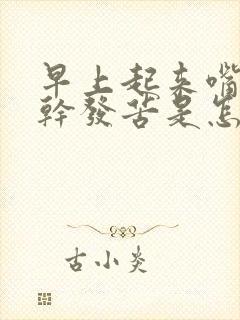 早上起来嘴
幹發苦是怎
古小炎